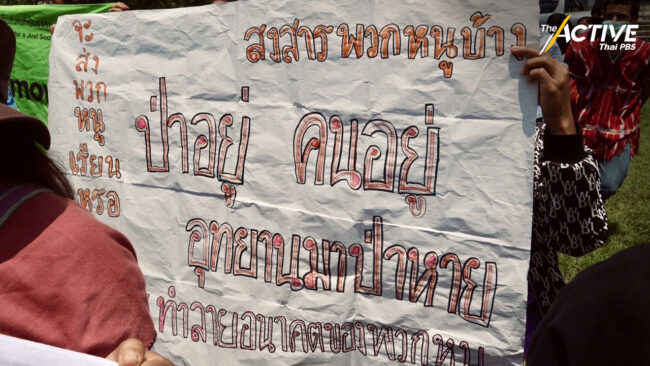 The ACTIVE
Thai PBS
for a Just
สงสารพวกหนูบ้าง
จะ
ส่ง
พวก
หนู
เรียน
หรอ
ป่าอยู่ คนอยู่
อุทยานมาป่าหาย
ทำลายอนาคตของพวกหนู